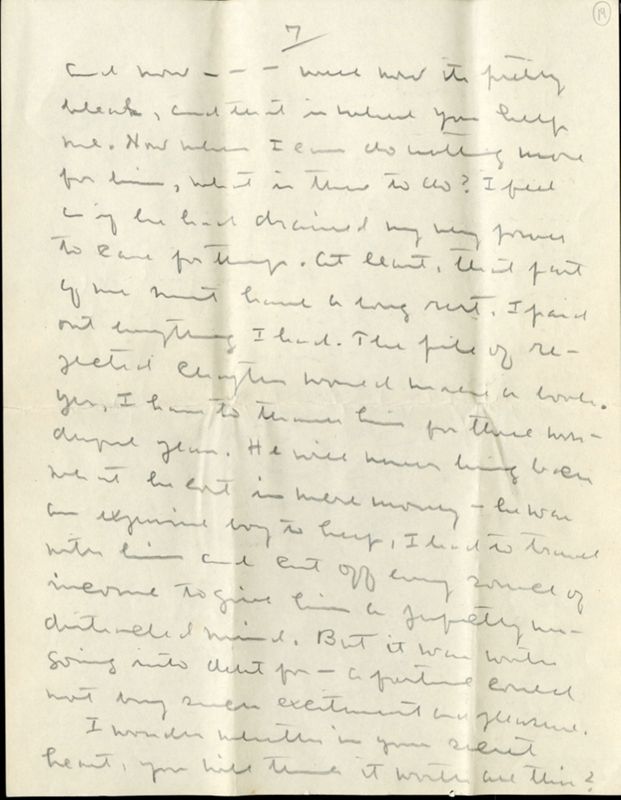 19
7
and now – – – well now it's pretty
bleak, and that is where you help
me. Now when I can do nothing more
for him, what is there to do? I feel
as if he had drained my very power
to care for things. At least, that part
of me must have a long rest. I paid
out everything I had. The pile of re-
jected chapters would make a book.
Yes, I have to thank him for three won-
derful years. He will never bring back
what he cost in mere money – he was
an expensive boy to keep, I had to travel
with him and cut off every source of
income to give him a perfectly un-
distracted mind. But it was worth
going into debt for – a fortune could
not buy such excitement and pleasure.
I wonder whether in your secret
heart, you will think it worth all this?